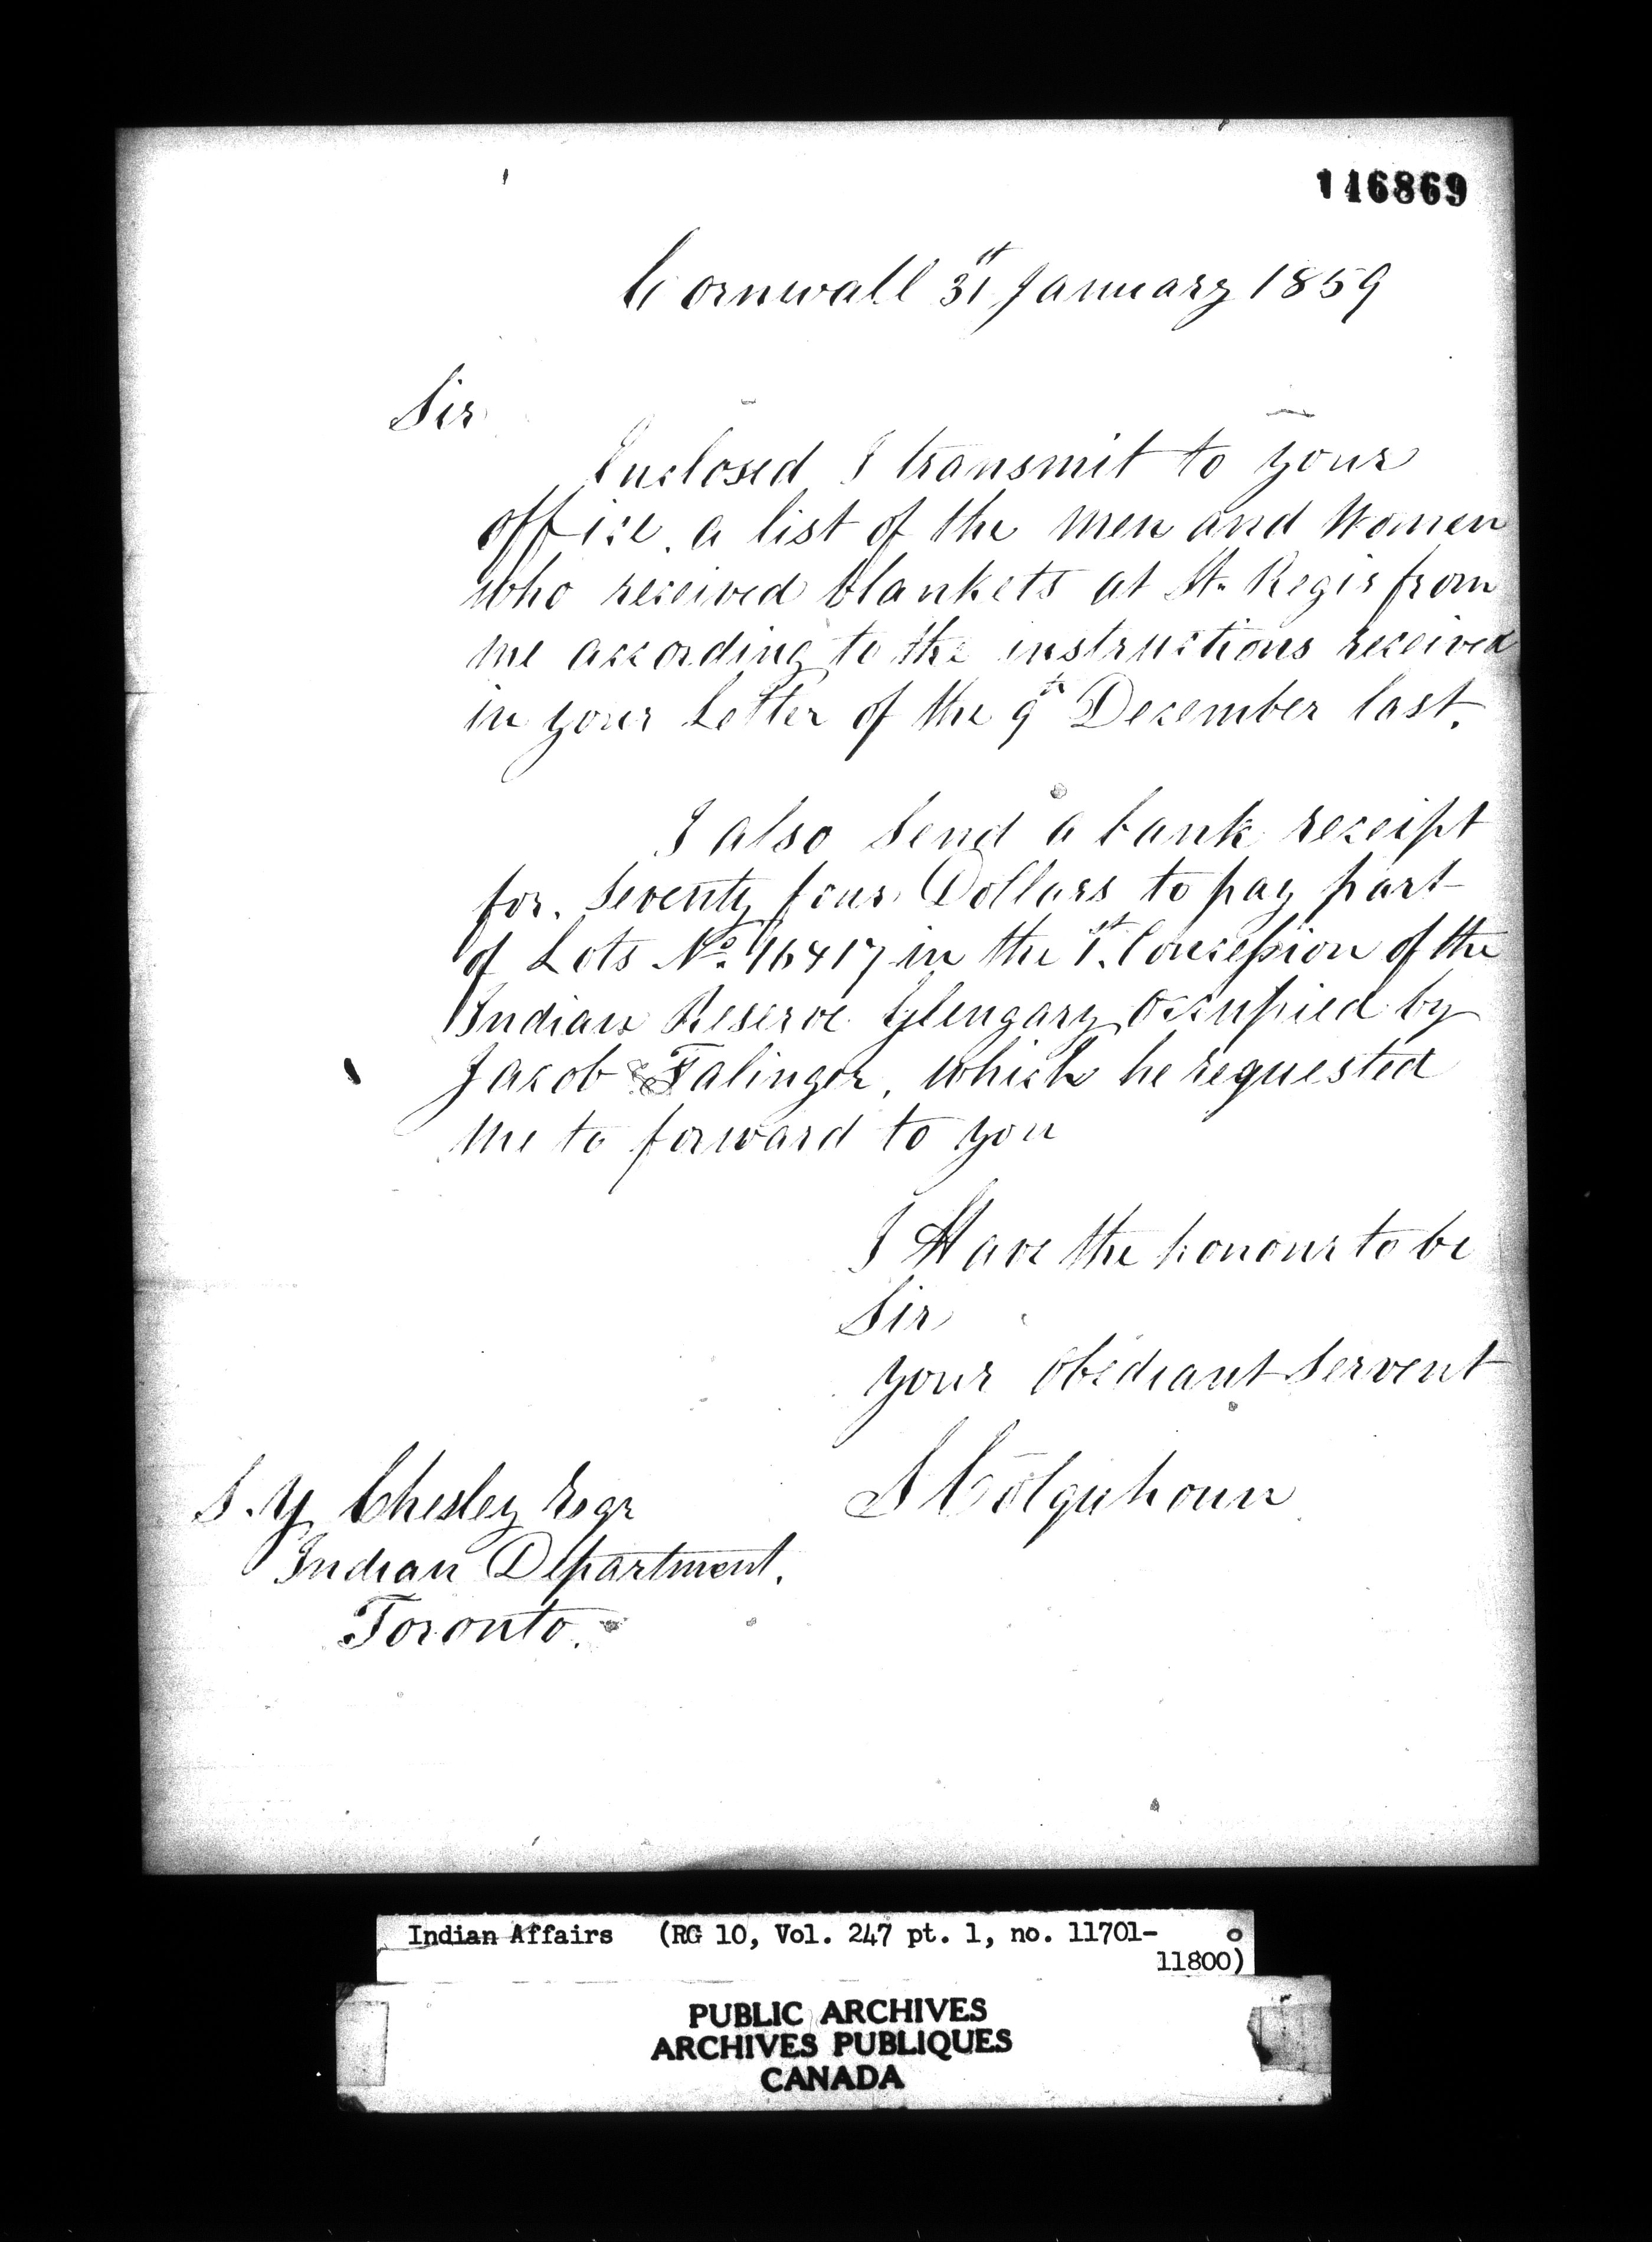 146869
Cornwall 31st January 1859
Sir
Inclosed I transmit to your
office. a list of the men and Women
who received blankets at St. Regis from
me according to the instructions received
in your Letter of the 9th December last.
I also send a bank receipt
for. Seventy four Dollars to pay part
of Lots No. 16 & 17 in the 1st. Concession of the
Indian Reserve Glengary occupied by
Jacob Falinger, which he requested
me to forward to you
I Have the honour to be
Sir
your Obediant Servent
S Colquhoun
S. Y Chesley Esqr
Indian Department.
Toronto.
Indian Affairs (RG 10, Vol. 247 pt. 1, no. 11701-
11800)
PUBLIC ARCHIVES
ARCHIVES PUBLIQUES
CANADA